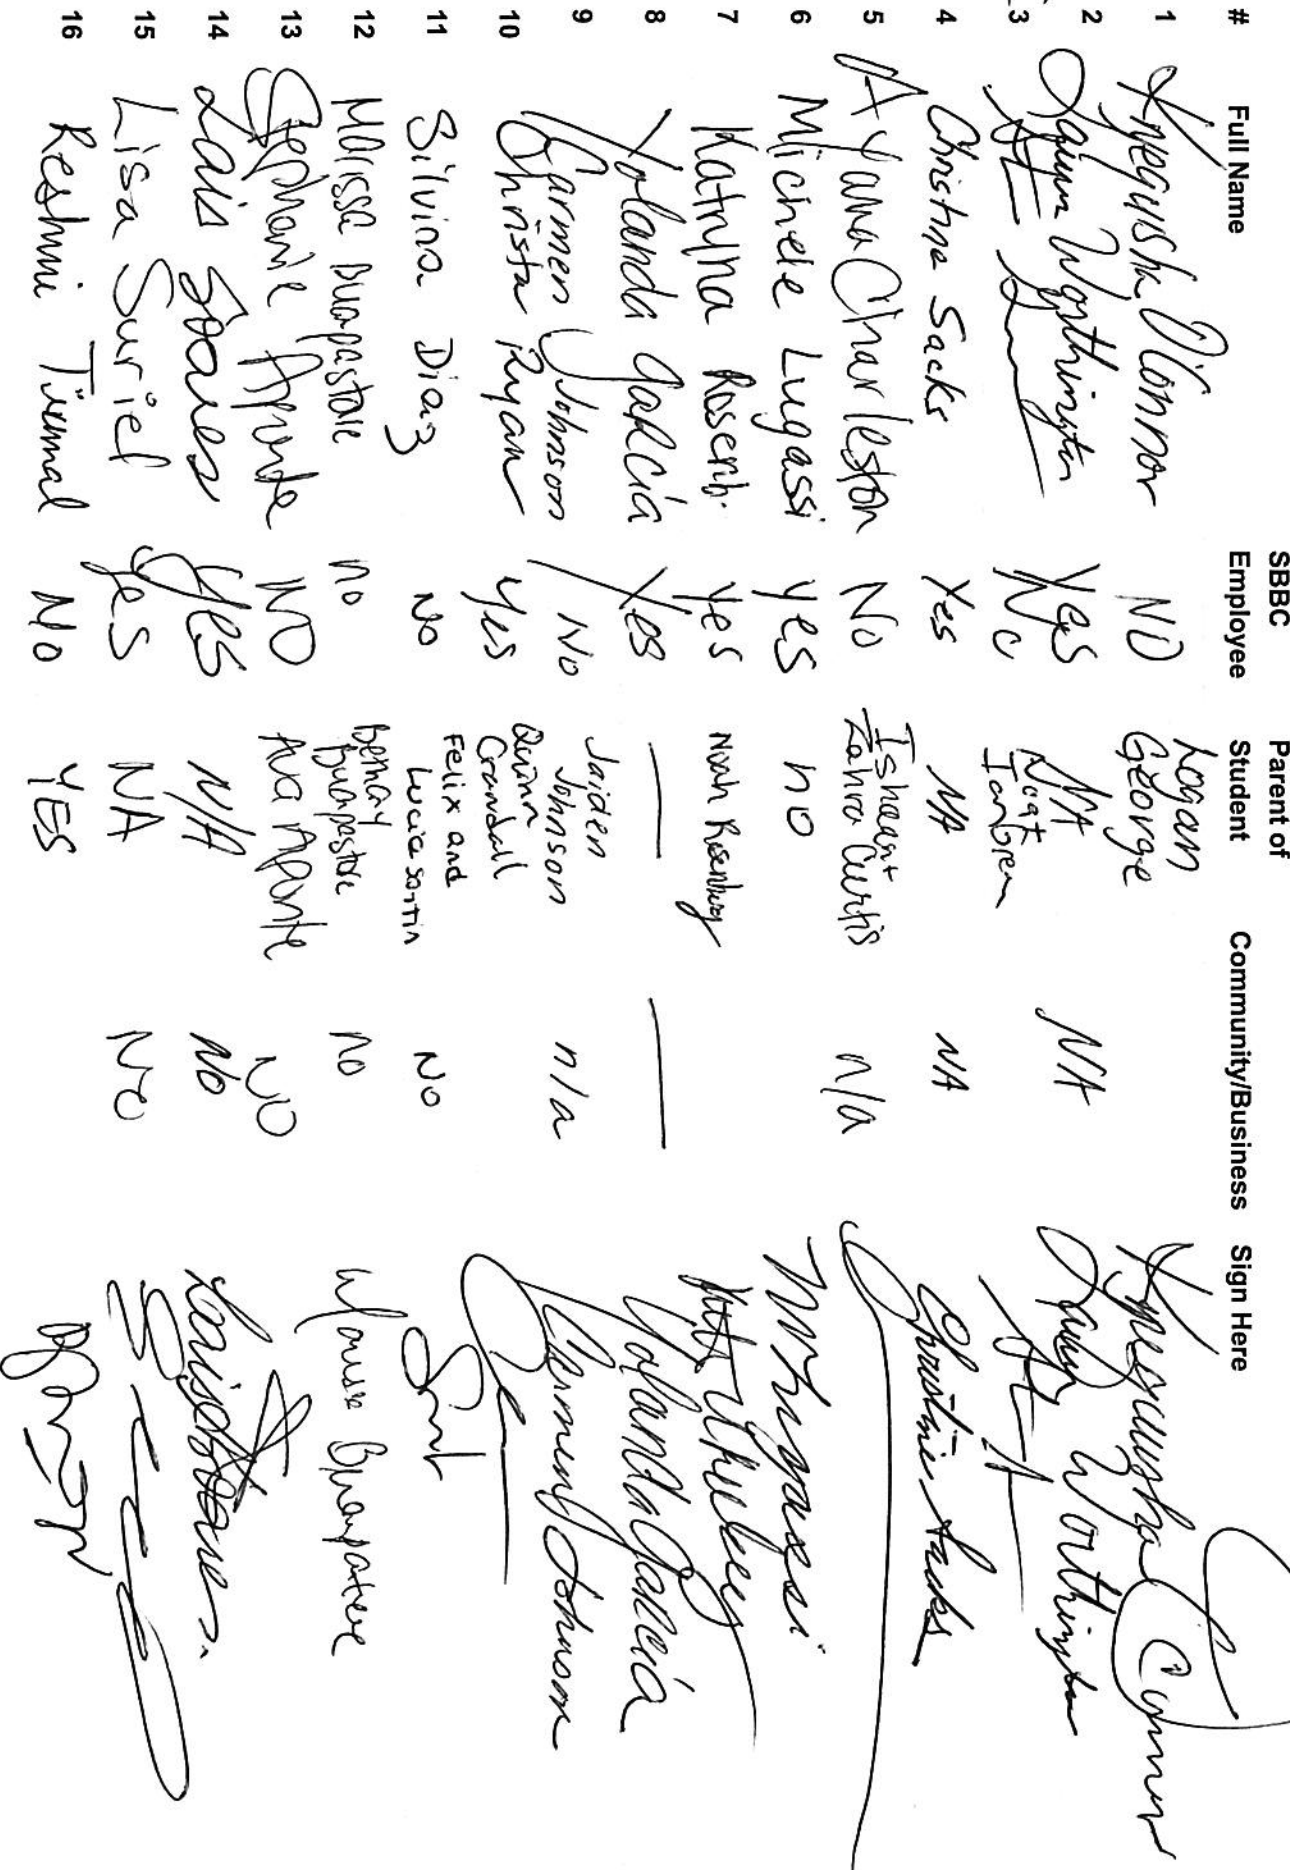 # Full Name SBBC Employee Parent of Student Community/Business Sign Here
1 O'Connor NO Logan George
2 Worthington Yes N/A NA Worthington
3
4 Christine Sacks Yes NA NA Christine Sacks
5 Ayana Charleston No Isheant + Zahra Curtis n/a
6 Michele Lugassi yes no M Lugassi
7 Katryna Yes Noah Rosenberg
8 Yolanda Garcia Yes — — Yolanda Garcia
9 Carmen Johnson No Jaiden Johnson n/a Carmen Johnson
10 Christa Ryan yes Quinn Crandall
11 Silvina Diaz No Felix and Lucia Santin No
12 no Buonpastore no
13 Stephanie Aponte NO Ava Aponte NO
14 Lais Soares Yes N/A No Lais Soares
15 Lisa Suriel yes NA No
16 Reshmi Tirumal No YES